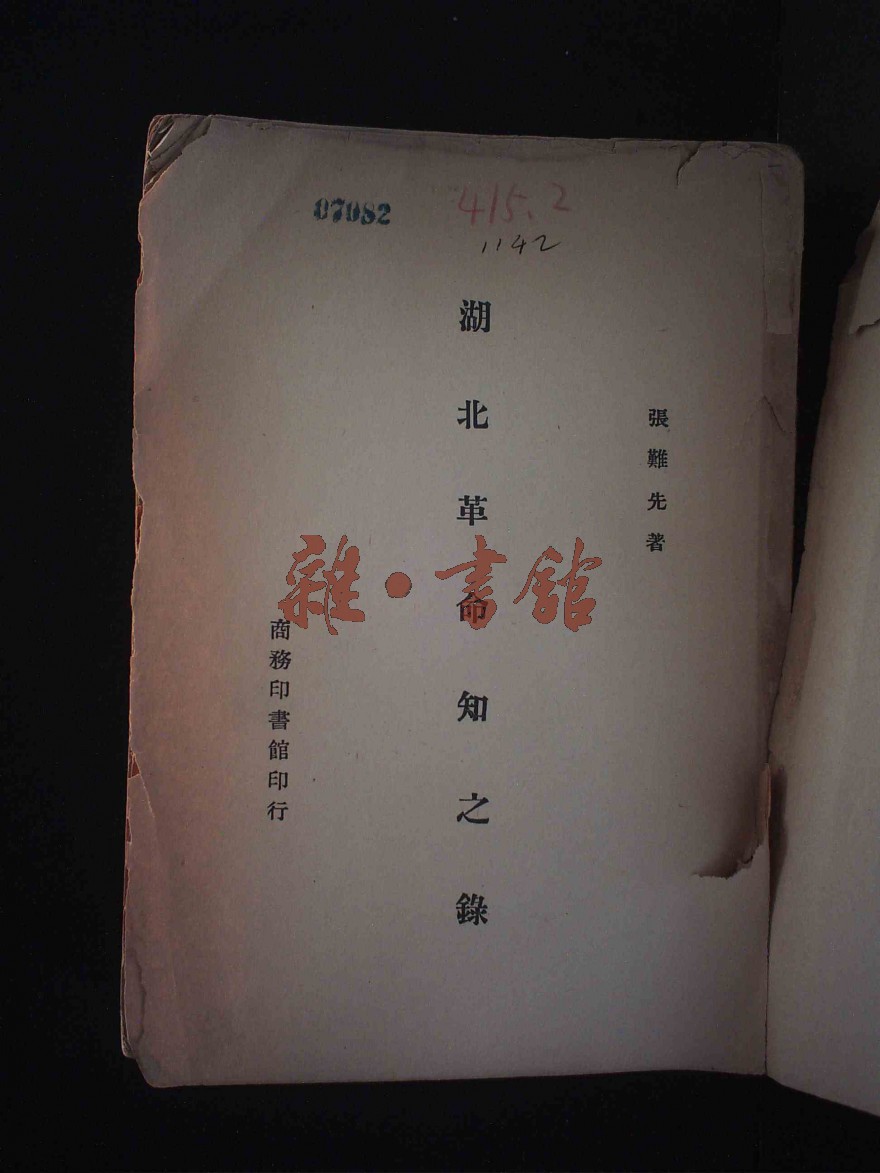 07082
415.2
1142
張難先著
湖北革命知之錄
商務印書館印行
雜·書館